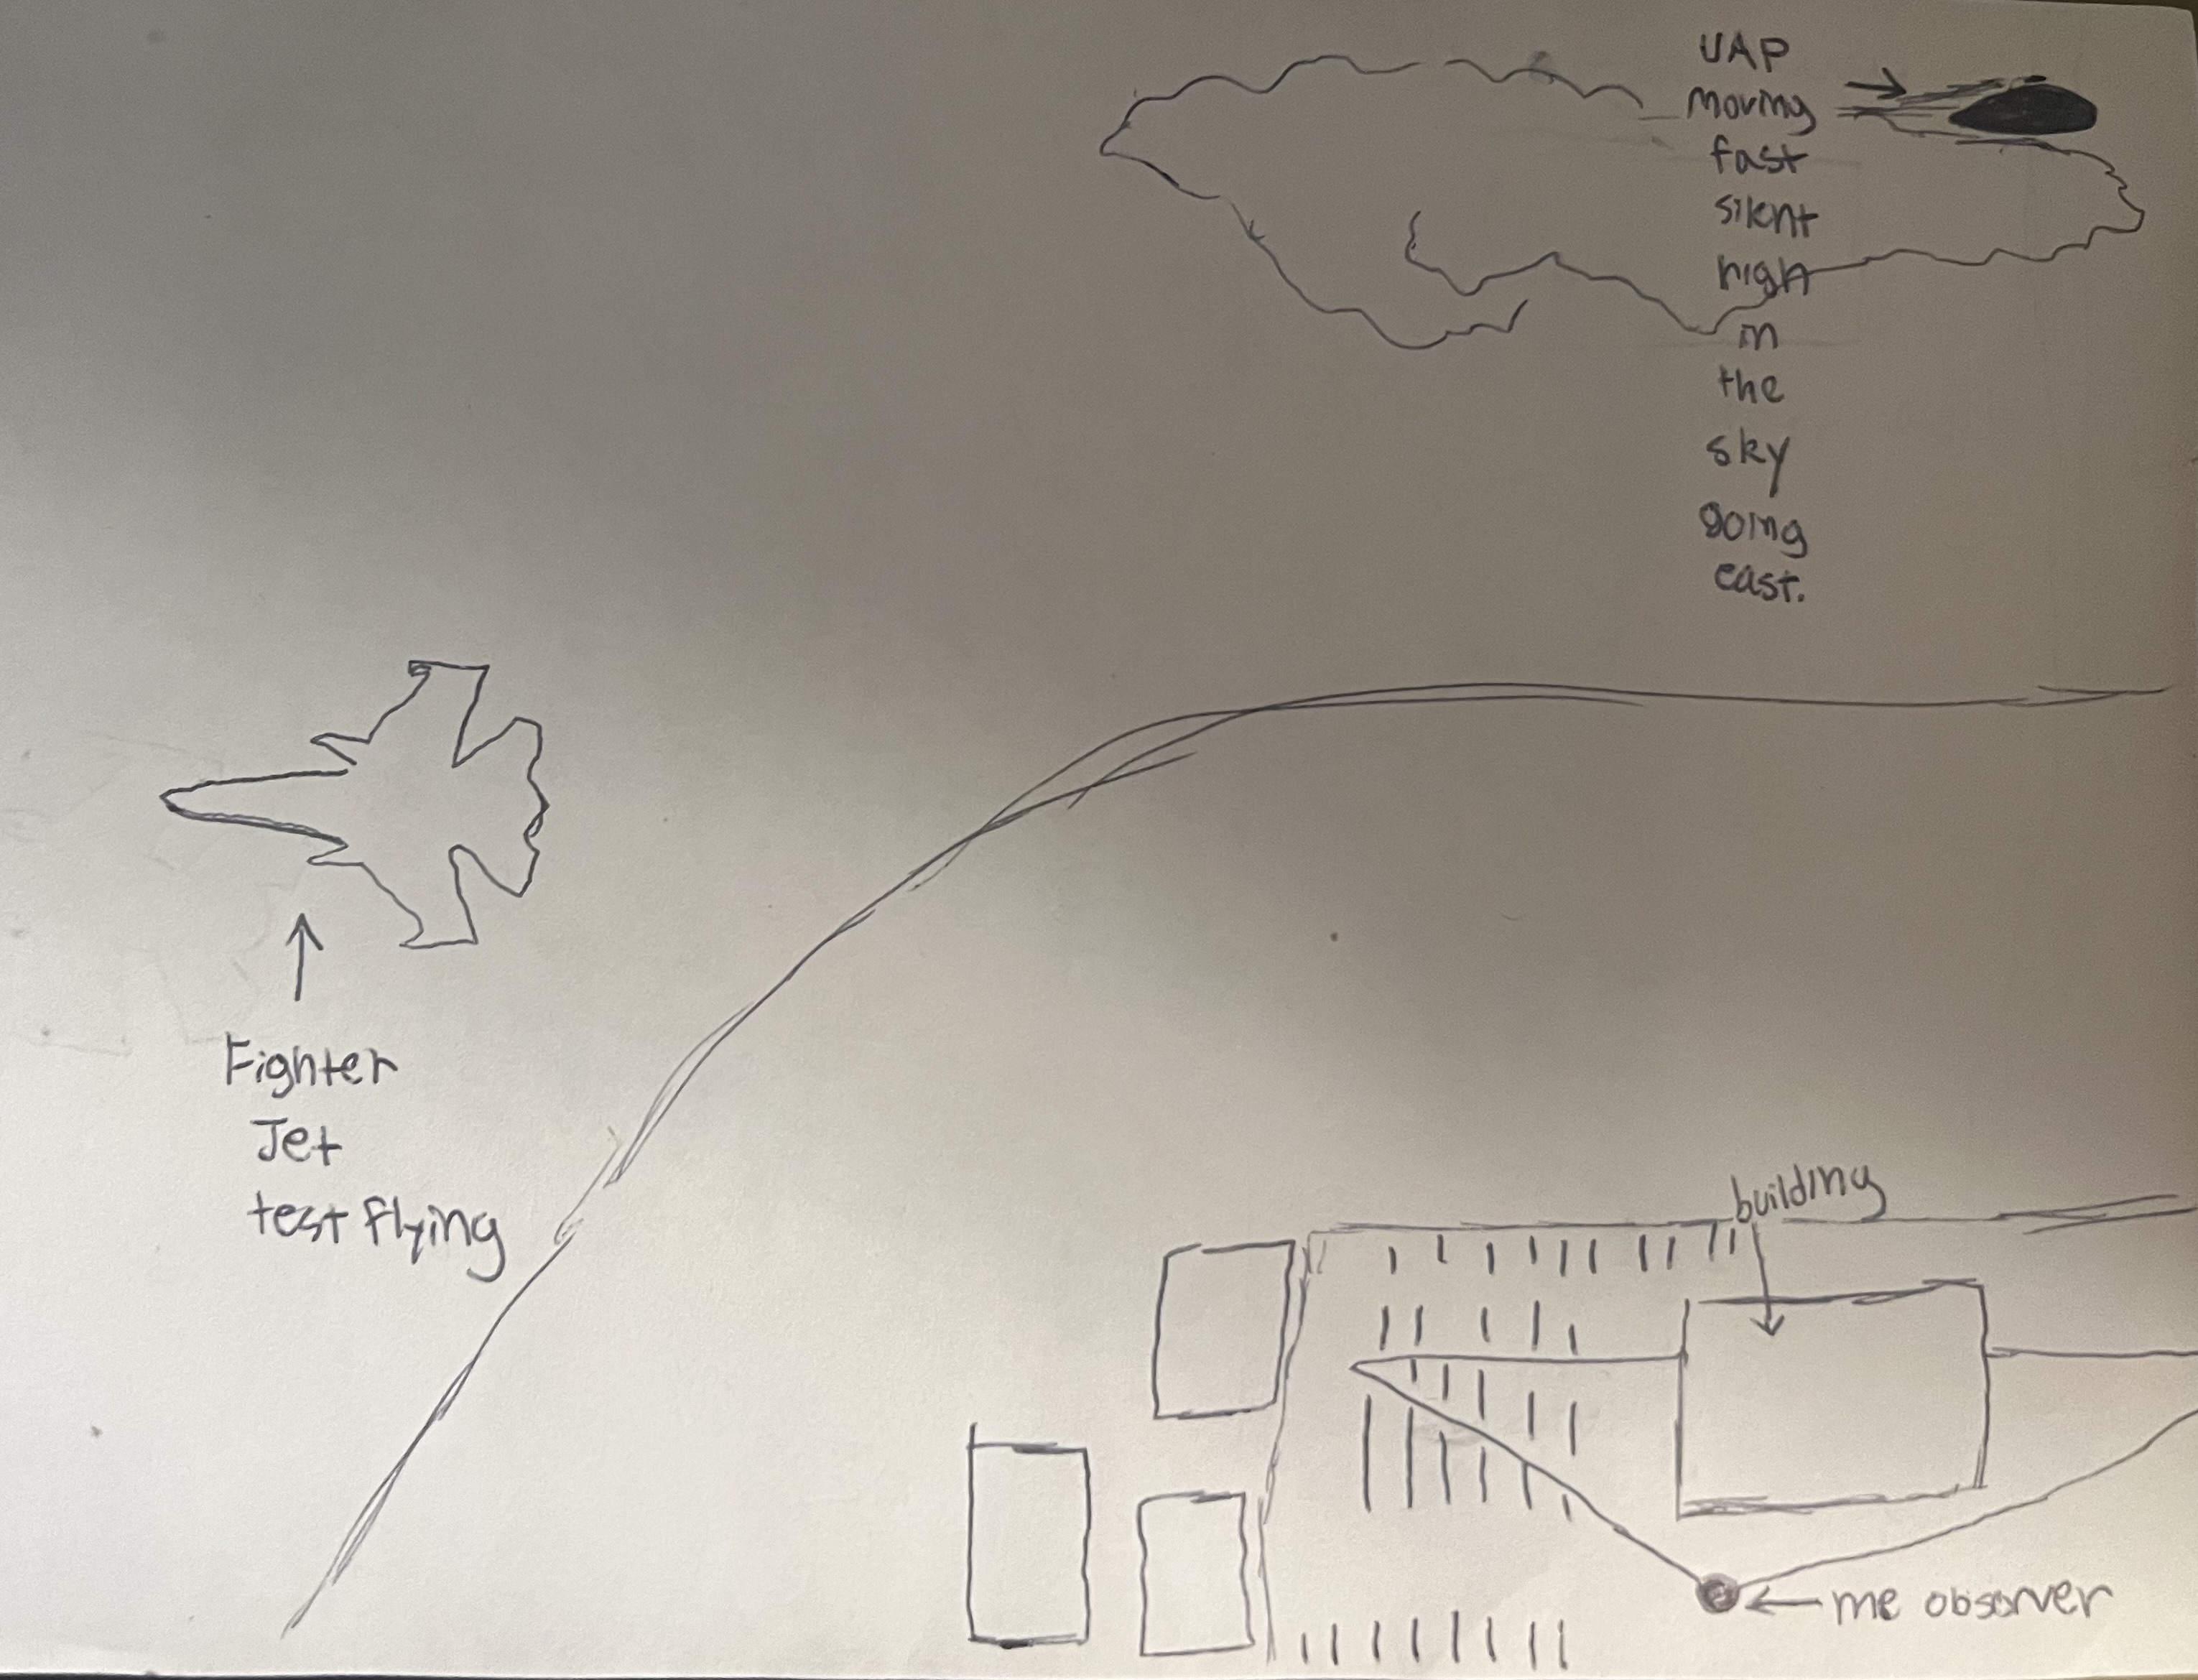 UAP
moving
fast
silent
high
in
the
sky
going
east.
Fighter
Jet
test flying
building
me observer